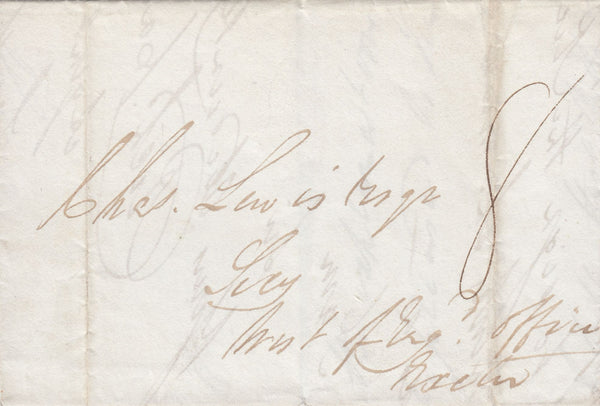 Chas. Lewis Esqr 8
Secy
West of Eng.d office
Exeter